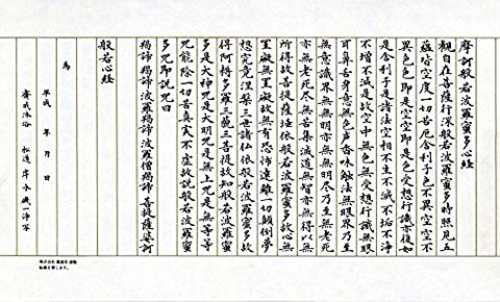 摩訶般若波羅蜜多心経
観自在菩薩行深般若波羅蜜多時照見五
蘊皆空度一切苦厄舎利子色不異空空不
異色色即是空空即是色受想行識亦復如
是舎利子是諸法空相不生不滅不垢不浄
不増不減是故空中無色無受想行識無眼
耳鼻舌身意無色声香味触法無眼界乃至
無意識界無無明亦無無明尽乃至無老死
亦無老死尽無苦集滅道無智亦無得以無
所得故菩提薩埵依般若波羅蜜多故心無
罣礙無罣礙故無有恐怖遠離一切顛倒夢
想究竟涅槃三世諸仏依般若波羅蜜多故
得阿耨多羅三藐三菩提故知般若波羅蜜
多是大神呪是大明呪是無上呪是無等等
呪能除一切苦真実不虚故説般若波羅蜜
多呪即説呪曰
羯諦羯諦波羅羯諦波羅僧羯諦菩提薩婆訶
般若心経
為
平成 年 月 日